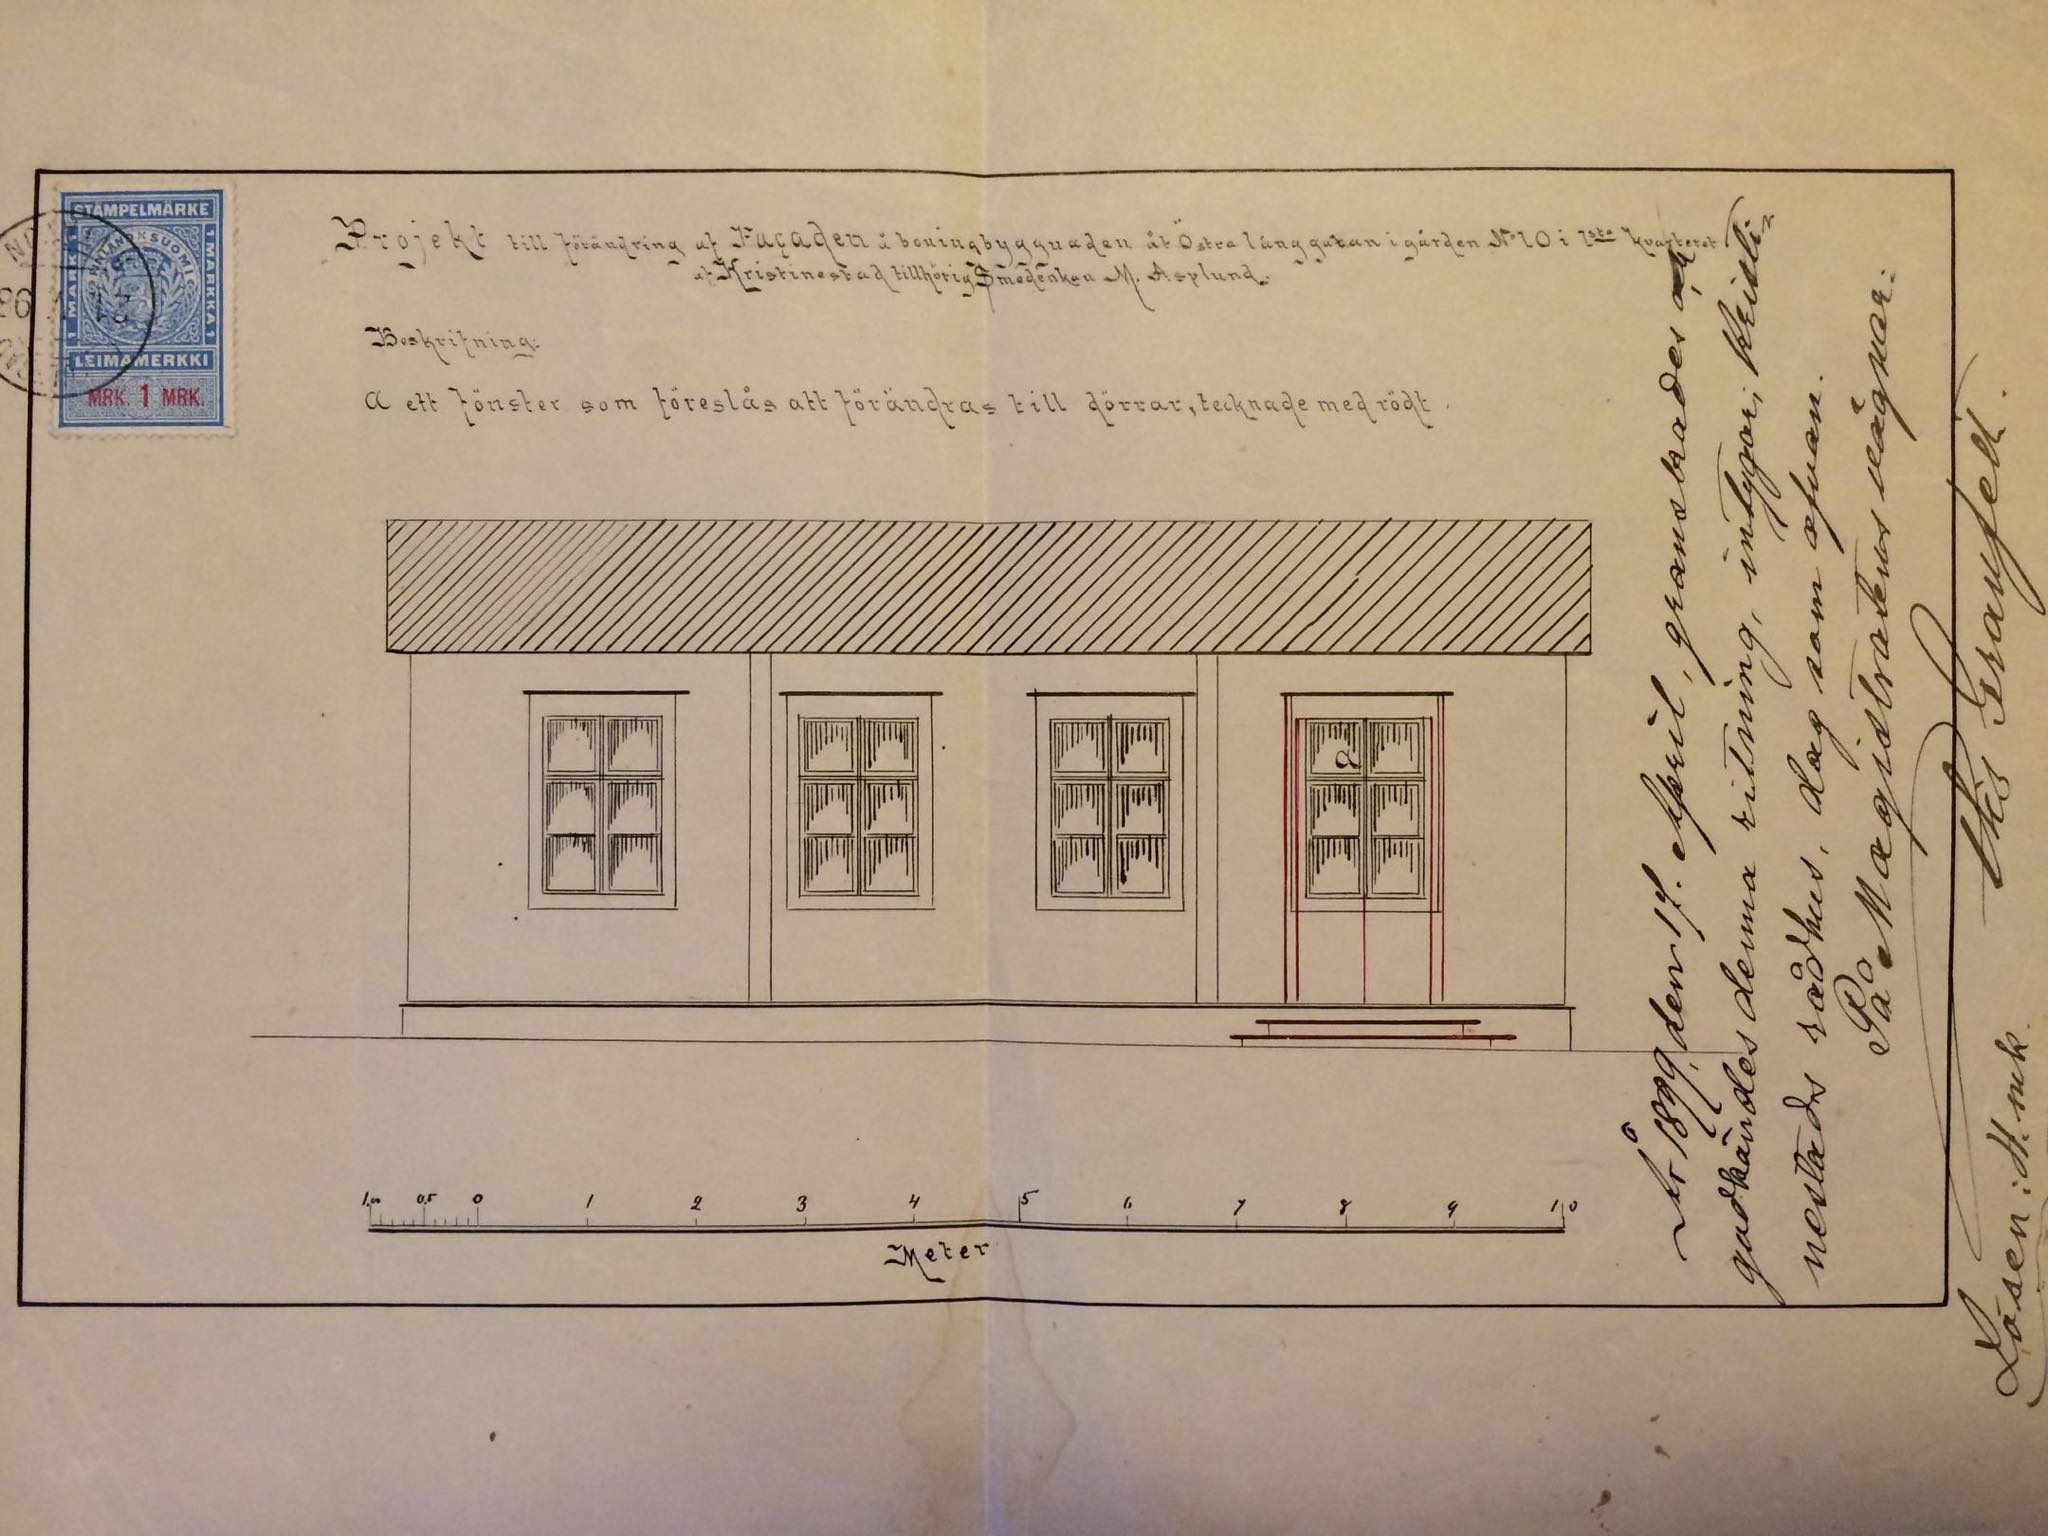 STÄMPELMÄRKE
FINLAND SUOMI
1 MARK 1
1 MARKKA 1
LEIMAMERKKI
MRK. 1 MRK.
Projekt till förändring af Façaden å boningbyggnaden åt Östra långgatan i gården No 10 i 1sta kvarteret
af Kristinestad tillhörig Smedenkan M. Asplund.
Beskrifning:
a ett fönster som föreslås att förändras till dörrar, tecknade med rödt.
a
1,00 0,5 0 1 2 3 4 5 6 7 8 9 10
Meter
År 1899, den 17. April, granskades och
godkändes denna ritning, intygar; Kristi-
nestads rådhus, dag som ofvan.
På Magistratens vägnar:
Granfelt.
Lösen: mk.